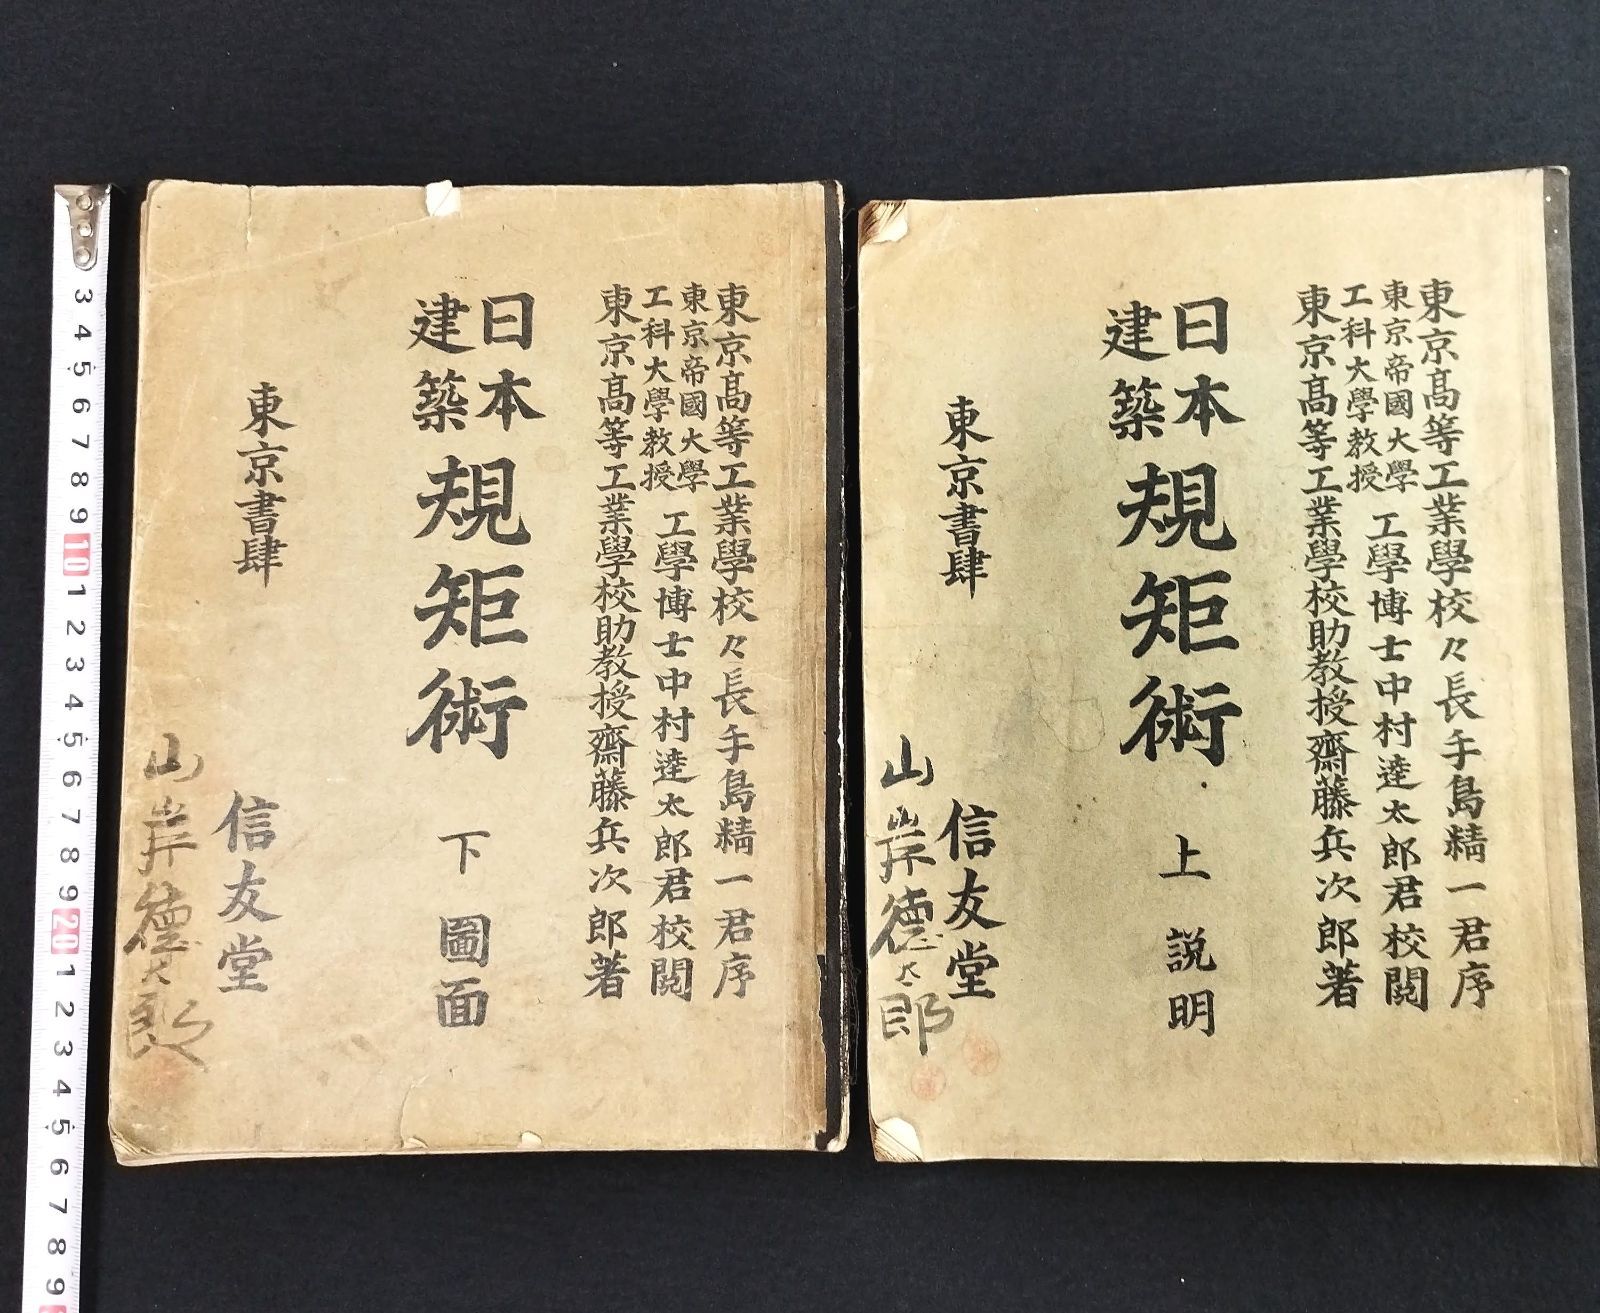 東京高等工業學校々長手島精一君序
東京帝國大學
工科大學教授
工學博士中村達太郎君校閲
東京高等工業學校助教授齋藤兵次郎著
日本
建築
規矩術
上 説明
東京書肆
信友堂
山岸德太郎
東京高等工業學校々長手島精一君序
東京帝國大學
工科大學教授
工學博士中村達太郎君校閲
東京高等工業學校助教授齋藤兵次郎著
日本
建築
規矩術
下 圖面
東京書肆
信友堂
山岸德太郎
3
4
5
6
7
8
9
10
1
2
3
4
5
6
7
8
9
20
1
2
3
4
5
6
7
8
9